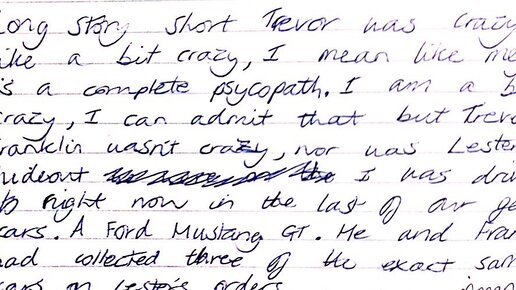 Long Story short Trevor was crazy
like a bit crazy, I mean like me
is a complete psycopath. I am a b
crazy, I can admit that but Trevo
Franklin wasn't crazy, nor was Lester
hideout I was driv
to right now in the last of our ge
cars. A Ford Mustang GT. Me and Fran
had collected three of the exact sam
cars on Lester's orders